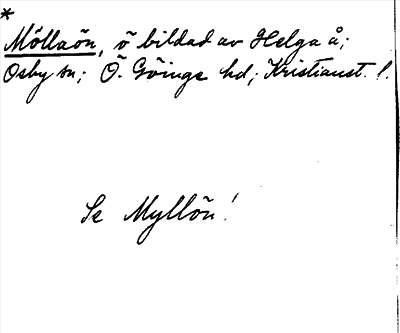 *
Möllaön, ö bildad av Helga å;
Osby sn; Ö. Göinge hd; Kristianst. l.
Se Myllön!